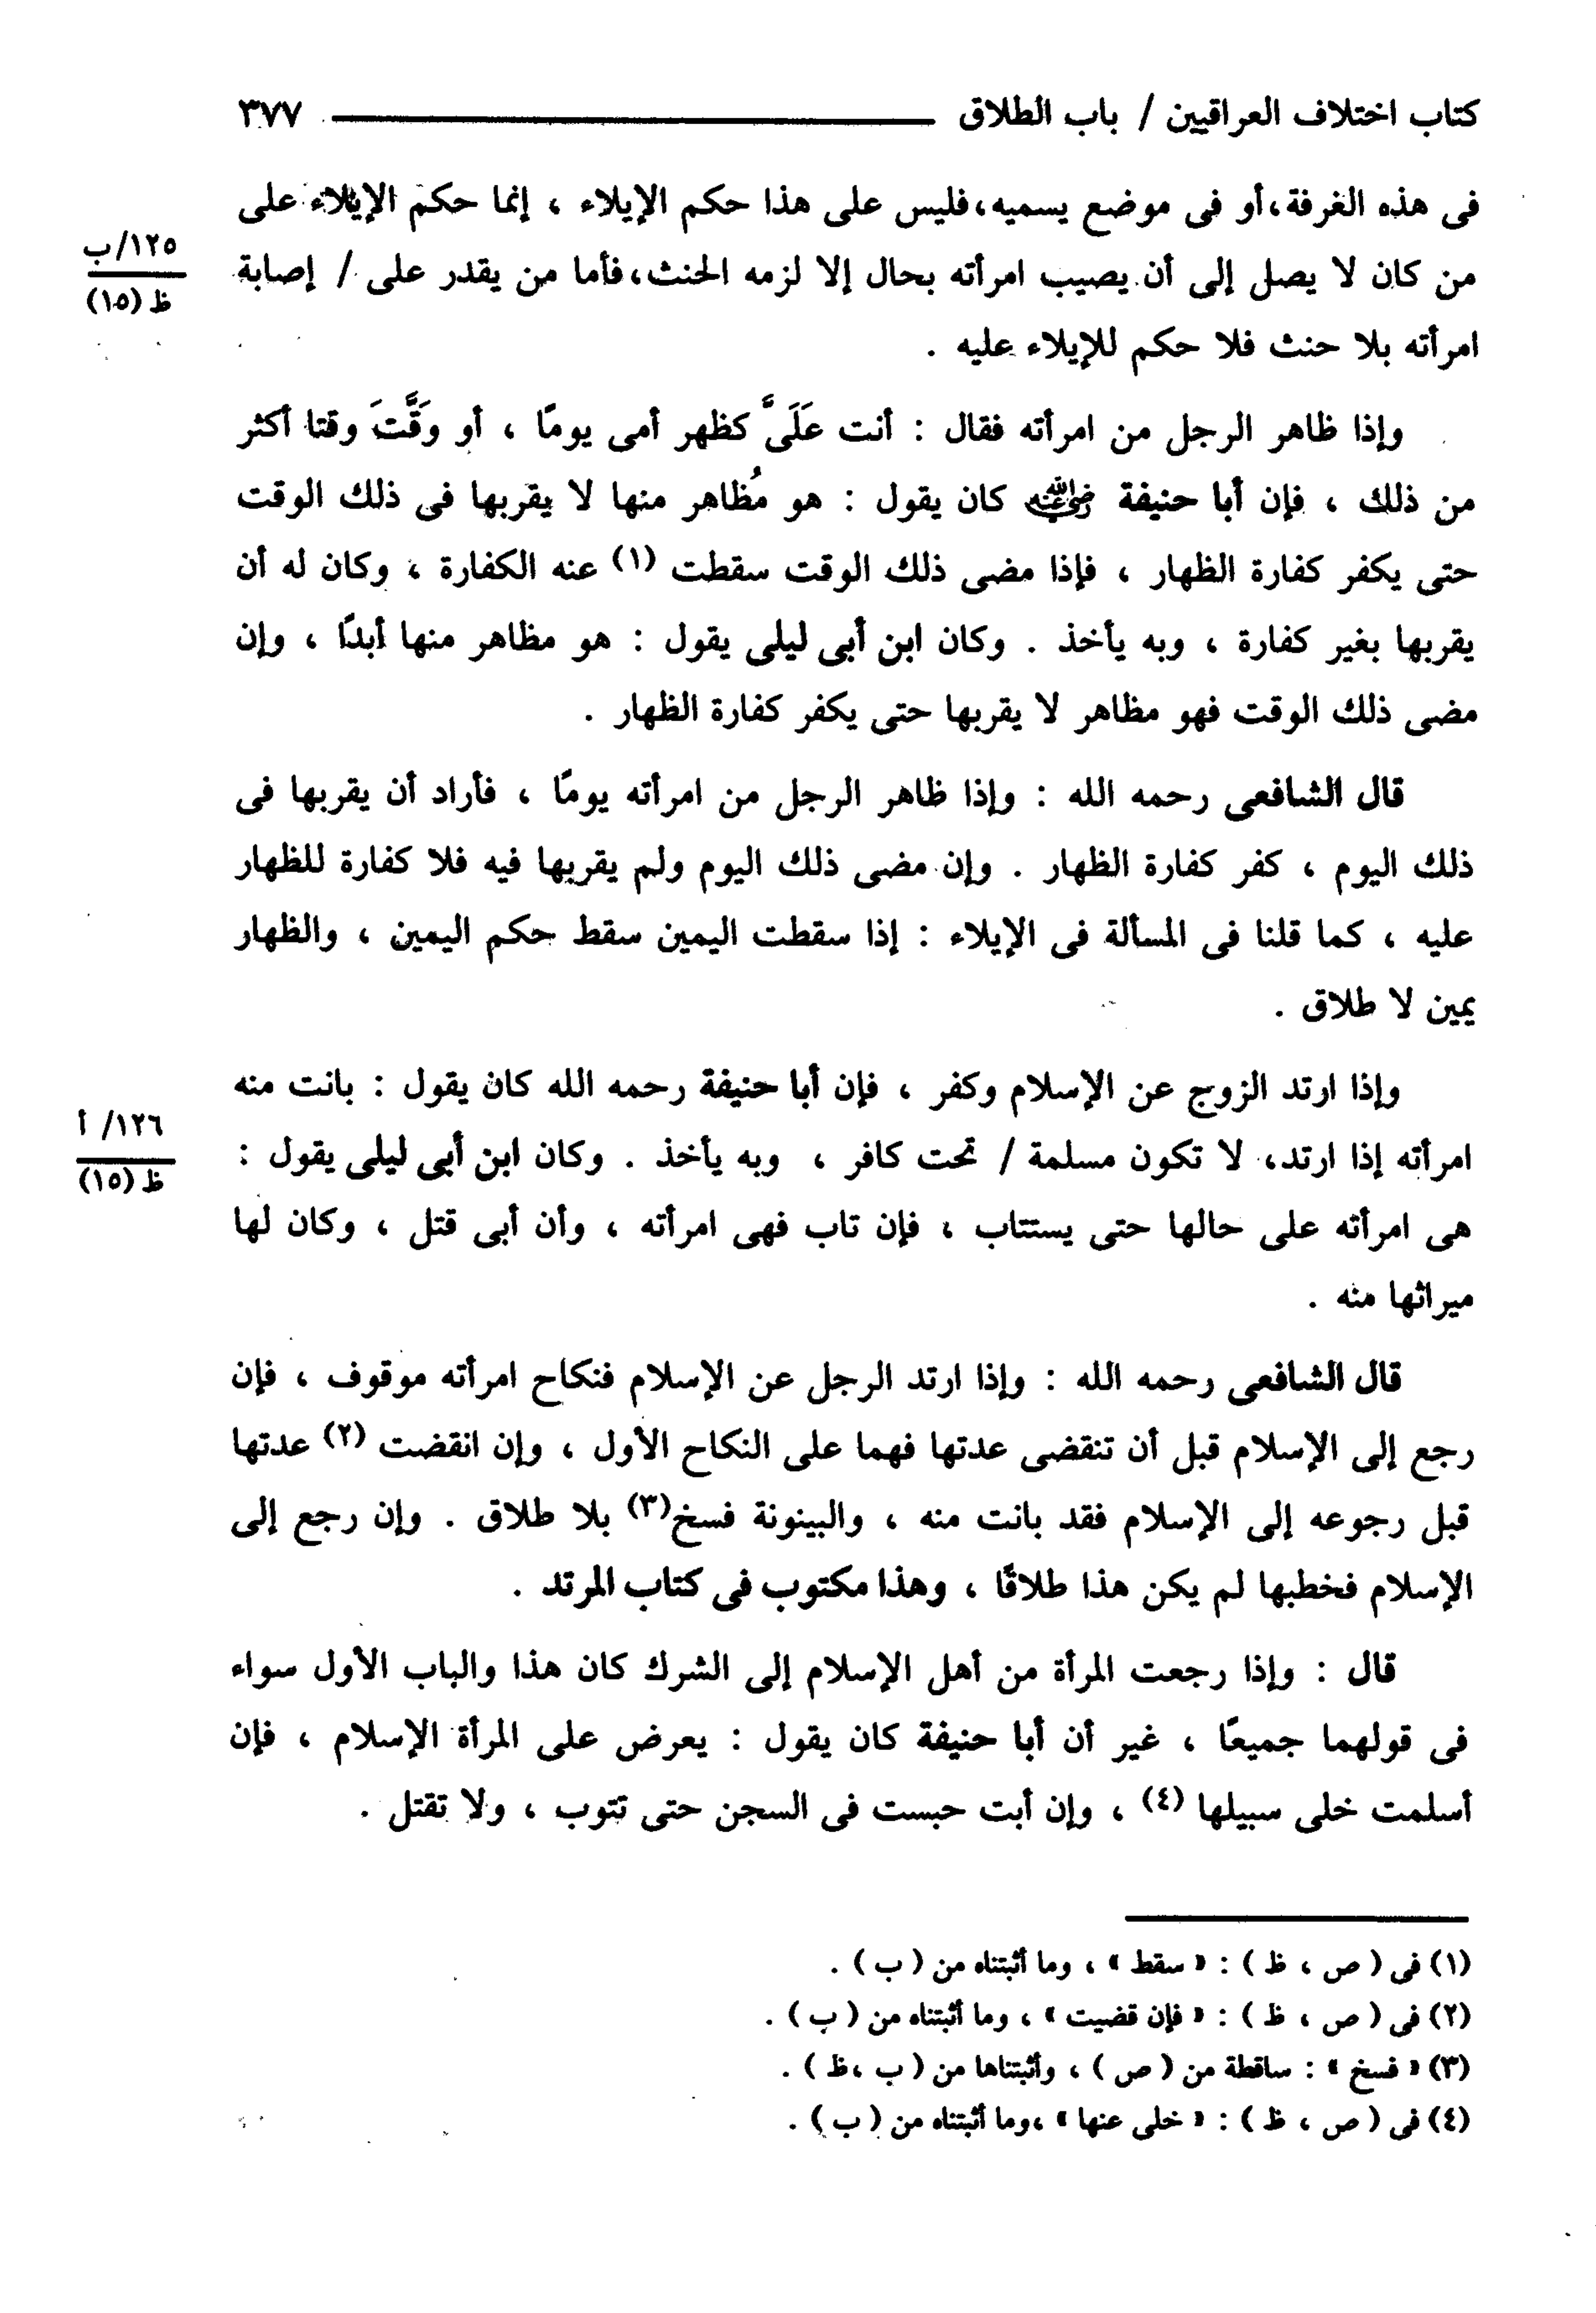 كتاب اختلاف العراقيين / باب الطلاق ــــــــــــــــــــ ٣٧٧
فى هذه الغرفة،أو فى موضع يسميه،فليس على هذا حكم الإيلاء ، إنما حكم الإيلاء على
١٢٥/ب
ظ (١٥)
من كان لا يصل إلى أن يصيب امرأته بحال إلا لزمه الحنث،فأما من يقدر على / إصابة
امرأته بلا حنث فلا حكم للإيلاء عليه .
وإذا ظاهر الرجل من امرأته فقال : أنت عَلَىَّ كظهر أمى يومًا ، أو وَقَّتَ وقتا أكثر
من ذلك ، فإن أبا حنيفة رضي الله عنه كان يقول : هو مُظاهر منها لا يقربها فى ذلك الوقت
حتى يكفر كفارة الظهار ، فإذا مضى ذلك الوقت سقطت (١) عنه الكفارة ، وكان له أن
يقربها بغير كفارة ، وبه يأخذ . وكان ابن أبى ليلى يقول : هو مظاهر منها أبدًا ، وإن
مضى ذلك الوقت فهو مظاهر لا يقربها حتى يكفر كفارة الظهار .
قال الشافعى رحمه الله : وإذا ظاهر الرجل من امرأته يومًا ، فأراد أن يقربها فى
ذلك اليوم ، كفر كفارة الظهار . وإن مضى ذلك اليوم ولم يقربها فيه فلا كفارة للظهار
عليه ، كما قلنا فى المسألة فى الإيلاء : إذا سقطت اليمين سقط حكم اليمين ، والظهار
يمين لا طلاق .
وإذا ارتد الزوج عن الإسلام وكفر ، فإن أبا حنيفة رحمه الله كان يقول : بانت منه
١٢٦/ أ
ظ (١٥)
امرأته إذا ارتد، لا تكون مسلمة / تحت كافر ، وبه يأخذ . وكان ابن أبى ليلى يقول :
هى امرأته على حالها حتى يستتاب ، فإن تاب فهى امرأته ، وأن أبى قتل ، وكان لها
ميراثها منه .
قال الشافعى رحمه الله : وإذا ارتد الرجل عن الإسلام فنكاح امرأته موقوف ، فإن
رجع إلى الإسلام قبل أن تنقضى عدتها فهما على النكاح الأول ، وإن انقضت (٢) عدتها
قبل رجوعه إلى الإسلام فقد بانت منه ، والبينونة فسخ(٣) بلا طلاق . وإن رجع إلى
الإسلام فخطبها لم يكن هذا طلاقًا ، وهذا مكتوب فى كتاب المرتد .
قال : وإذا رجعت المرأة من أهل الإسلام إلى الشرك كان هذا والباب الأول سواء
فى قولهما جميعًا ، غير أن أبا حنيفة كان يقول : يعرض على المرأة الإسلام ، فإن
أسلمت خلى سبيلها (٤) ، وإن أبت حبست فى السجن حتى تتوب ، ولا تقتل .
(١) فى ( ص ، ظ ) : « سقط » ، وما أثبتناه من ( ب ) .
(٢) فى ( ص ، ظ ) : « فإن قضيت » ، وما أثبتناه من ( ب ) .
(٣) « فسخ » : ساقطة من ( ص ) ، وأثبتناها من ( ب ،ظ ) .
(٤) فى ( ص ، ظ ) : « خلى عنها » ،وما أثبتناه من ( ب ) .